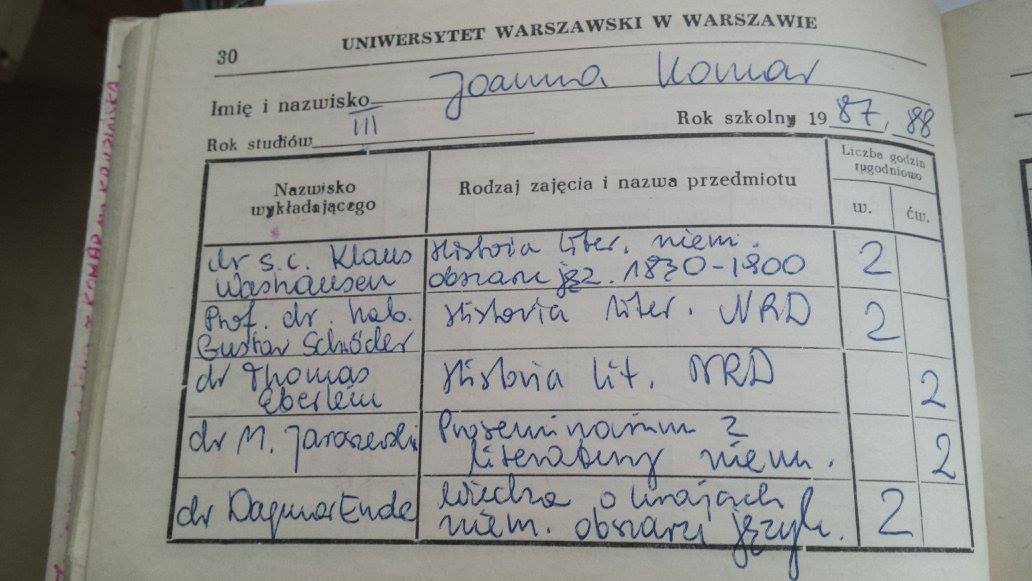 30
UNIWERSYTET WARSZAWSKI W WARSZAWIE
Imię i nazwisko Joanna Komar
Rok studiów III
Rok szkolny 1987/88
Nazwisko wykładającego
Rodzaj zajęcia i nazwa przedmiotu
Liczba godzin tygodniowo
w. ćw.
dr s.c. Klaus Historia liter. niem.
Washausen obszaru jęz. 1830-1900 2
Prof. dr. hab. Historia liter. NRD 2
Gustav Schröder
dr Thomas Historia lit. NRD 2
Eberlein
dr M. Jaroszewski Proseminarium z
literatury niem. 2
dr Dagmar Ende Wiedza o krajach
niem. obszaru język. 2